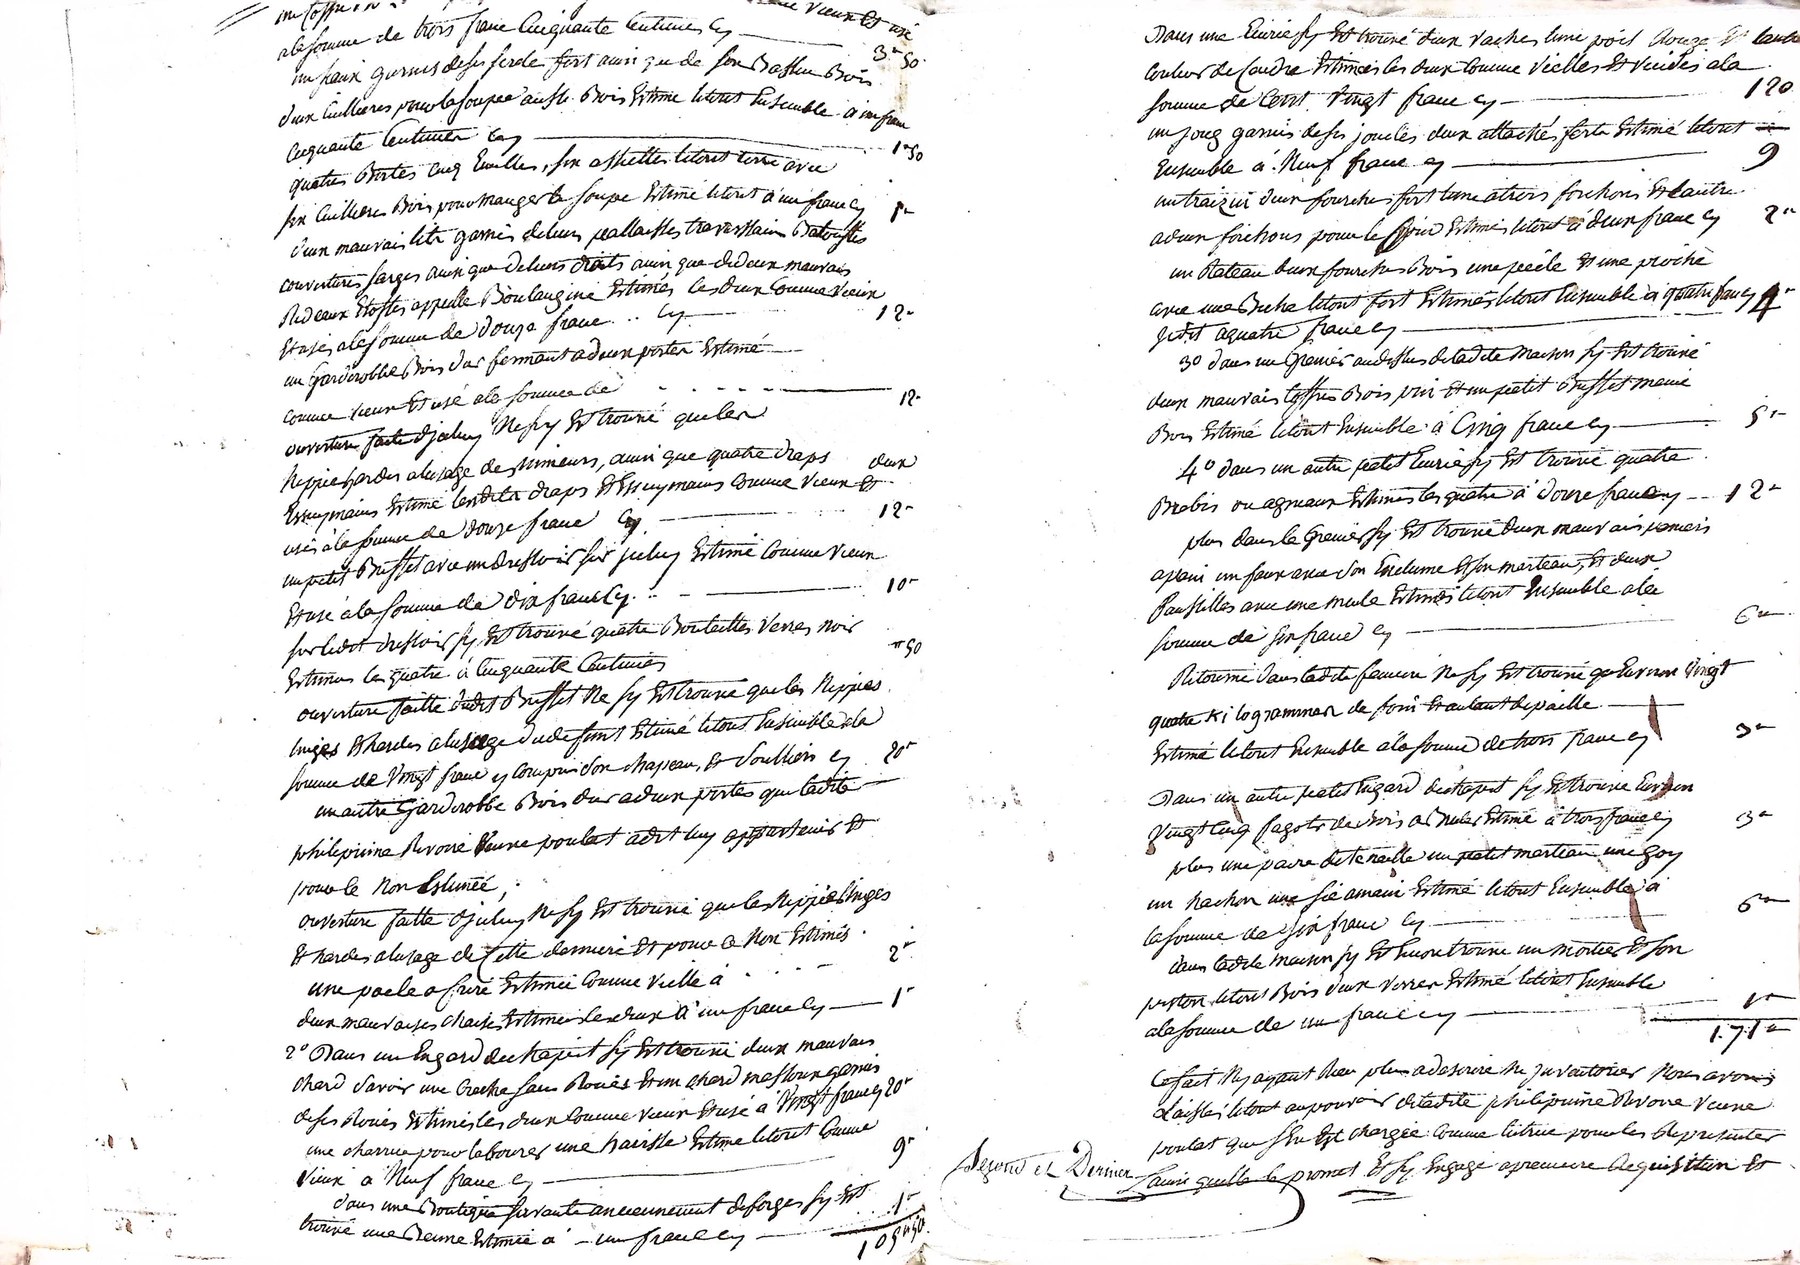 un Coffre
vieux Et usé
ala somme de trois franc Cinquante Centimes Cy 3" 50
un seaux garnis de ses sercle fert ainsi que de son Bassin Bois
deux Cuillieres pour la soupee aussi Bois Estimé letout Ensemble à un franc
Cinquante Centimes Cy 1"50
quatres Portes cinq Ecuilles, six assiettes letout terre avec
six Cuillieres Bois pour manger la soupe Estimé letout à un franc Cy 1"
deux mauvais lits garnis de leurs paillasses traverssains
couvertures sarges ainsi que de leurs draits ainsi que de deux mauvais
Rideaux Etoffes appellé Boulangine Estimés les deux Comme Vieux
Et usés ala somme de douze franc .. Cy 12"
un Garderobbe Bois dur fermant a deux portes Estimé
comme vieux Et usé ala somme de 12"
ouverture faite d'jceluy Ne sy Est trouvé que les
Nippie hardes alusage des mineurs, ainsi que quatre draps deux
Essuymains Estimé lesdits draps Et Essuymains comme vieux Et
usés à la somme de douze franc Cy 12"
un petit Buffet avec un dressoir sur jceluy Estimé Comme vieux
Et usé à la somme de dix franc Cy 10"
sur ledit dressoir sy Est trouvé quatre Bouteilles Verres noir
Estimés les quatre à Cinquante Centimes "50
ouverture faitte dudit Buffet Ne sy Est trouvé que les Nippies
linges Et hardes alusage du defunt Estimé letout Ensemble ala
somme de Vingt franc y Compris son chapeau, Et soulliers Cy 20"
un autre Garderobbe Bois dur a deux portes que ladite
philipinne Rivoire Veuve poulat a dit luy appartenir Et
pour ce Non Estimée,
ouverture faitte d'jceluy Ne sy Est trouvé que les Nippies linges
Et hardes alusage de Cette derniere Et pour ce Non Estimés
une poele a frire Estimée Comme Vielle à 2"
deux mauvaises chaises Estimées les deux à un franc Cy 1"
2° Dans un Engard de chapit sy Est trouvé deux mauvais
chard savoir une Creche sans Roues Et un chard garnis
de ses Roues Estimés les deux Comme vieux Et usé à Vingt franc Cy 20"
une charrue pour labourer une haisse Estimé letout Comme
Vieux à Neuf franc Cy 9"
dans une Boutique servante anciennement de forges sy Est
trouvé une Benne Estimée à un franc Cy 1"
105"50
Dans une Ecurie sy Est trouvé deux vaches lune poil Rouge Et lautre
couleur de Cendre Estimées les deux Comme Vielles Et Vuides ala
somme de Cent Vingt franc Cy 120
un joug garnis de ses joucles deux attaches fert Estimé letout
Ensemble à Neuf franc Cy 9
un deux fourches fert lune a trois forchons Et lautre
a deux forchons pour le Estimés letout à deux franc Cy 2"
un Rateau deux fourches Bois une peele Et une pioche
avec une Beche letout fert Estimés letout Ensemble à quatre franc Cy 4"
a quatre franc Cy
3° dans un Grenier au dessus de ladite Maison sy Est trouvé
deux mauvais Coffres Bois pin Et un petit Buffet meme
Bois Estimé letout Ensemble à Cinq franc Cy 5"
4° dans un autre petit Ecurie sy Est trouvé quatre
Brebis ou agneaux Estimés les quatre à douze franc Cy 12"
plus dans le Grenier sy Est trouvé deux mauvais paniers
apain un faux avec son Enclume Et son marteau, Et deux
faussilles avec une meule Estimés letout Ensemble ala
somme de six franc Cy 6"
Retourné dans ladite feniere Ne sy Est trouvé qu'Environ Vingt
quatre Kilogrammes de foin Et autant de paille
Estimé letout Ensemble à la somme de trois franc Cy 3"
Dans un autre petit Engard de chapit sy Est trouvé Environ
Vingt Cinq fagots de Bois a Bruler Estimé à trois franc Cy 3"
plus une paire de tenaille un petit marteau une Goy
un hachon une sie amain Estimé letout Ensemble à
la somme de six franc Cy 6"
dans ladite maison sy Est Encore trouvé un mortier Et son
piston letout Bois deux Verres Estimé letout Ensemble
ala somme de un franc Cy 1"
171"
Ce fait Ny ayant Rien plus a descrire Ny jnventorier Nous avons
Laissé letout au pouvoir de ladite philipinne Rivoire Veuve
poulat que sEn Est chargée comme tutrice pour les Representer
ainsi quelle le promet Et sy Engage apremiere Requisition Et
Segond et Dernier